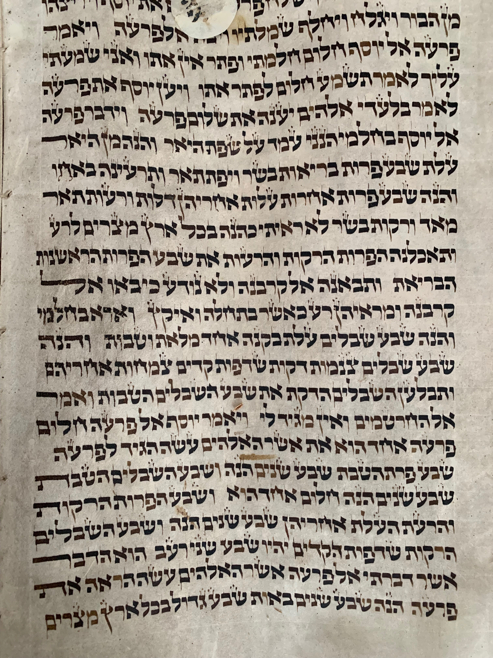 מן הבור ויגלח ויחלף שמלתיו ויבא אל פרעה ויאמר
פרעה אל יוסף חלום חלמתי ופתר אין אתו ואני שמעתי
עליך לאמר תשמע חלום לפתר אתו ויען יוסף את פרעה
לאמר בלעדי אלהים יענה את שלום פרעה וידבר פרעה
אל יוסף בחלמי הנני עמד על שפת היאר והנה מן היאר
עלת שבע פרות בריאות בשר ויפת תאר ותרעינה באחו
והנה שבע פרות אחרות עלות אחריהן דלות ורעות תאר
מאד ורקות בשר לא ראיתי כהנה בכל ארץ מצרים לרע
ותאכלנה הפרות הרקות והרעות את שבע הפרות הראשנות
הבריאת ותבאנה אל קרבנה ולא נודע כי באו אל
קרבנה ומראיהן רע כאשר בתחלה ואיקץ וארא בחלמי
והנה שבע שבלים עלת בקנה אחד מלאת וטבות והנה
שבע שבלים צנמות דקות שדפות קדים צמחות אחריהם
ותבלען השבלים הדקת את שבע השבלים הטבות ואמר
אל החרטמים ואין מגיד לי ויאמר יוסף אל פרעה חלום
פרעה אחד הוא את אשר האלהים עשה הגיד לפרעה
שבע פרת הטבת שבע שנים הנה ושבע השבלים הטבת
שבע שנים הנה חלום אחד הוא ושבע הפרות הרקות
והרעת העלת אחריהן שבע שנים הנה ושבע השבלים
הרקות שדפות הקדים יהיו שבע שני רעב הוא הדבר
אשר דברתי אל פרעה אשר האלהים עשה הראה את
פרעה הנה שבע שנים באות שבע גדול בכל ארץ מצרים